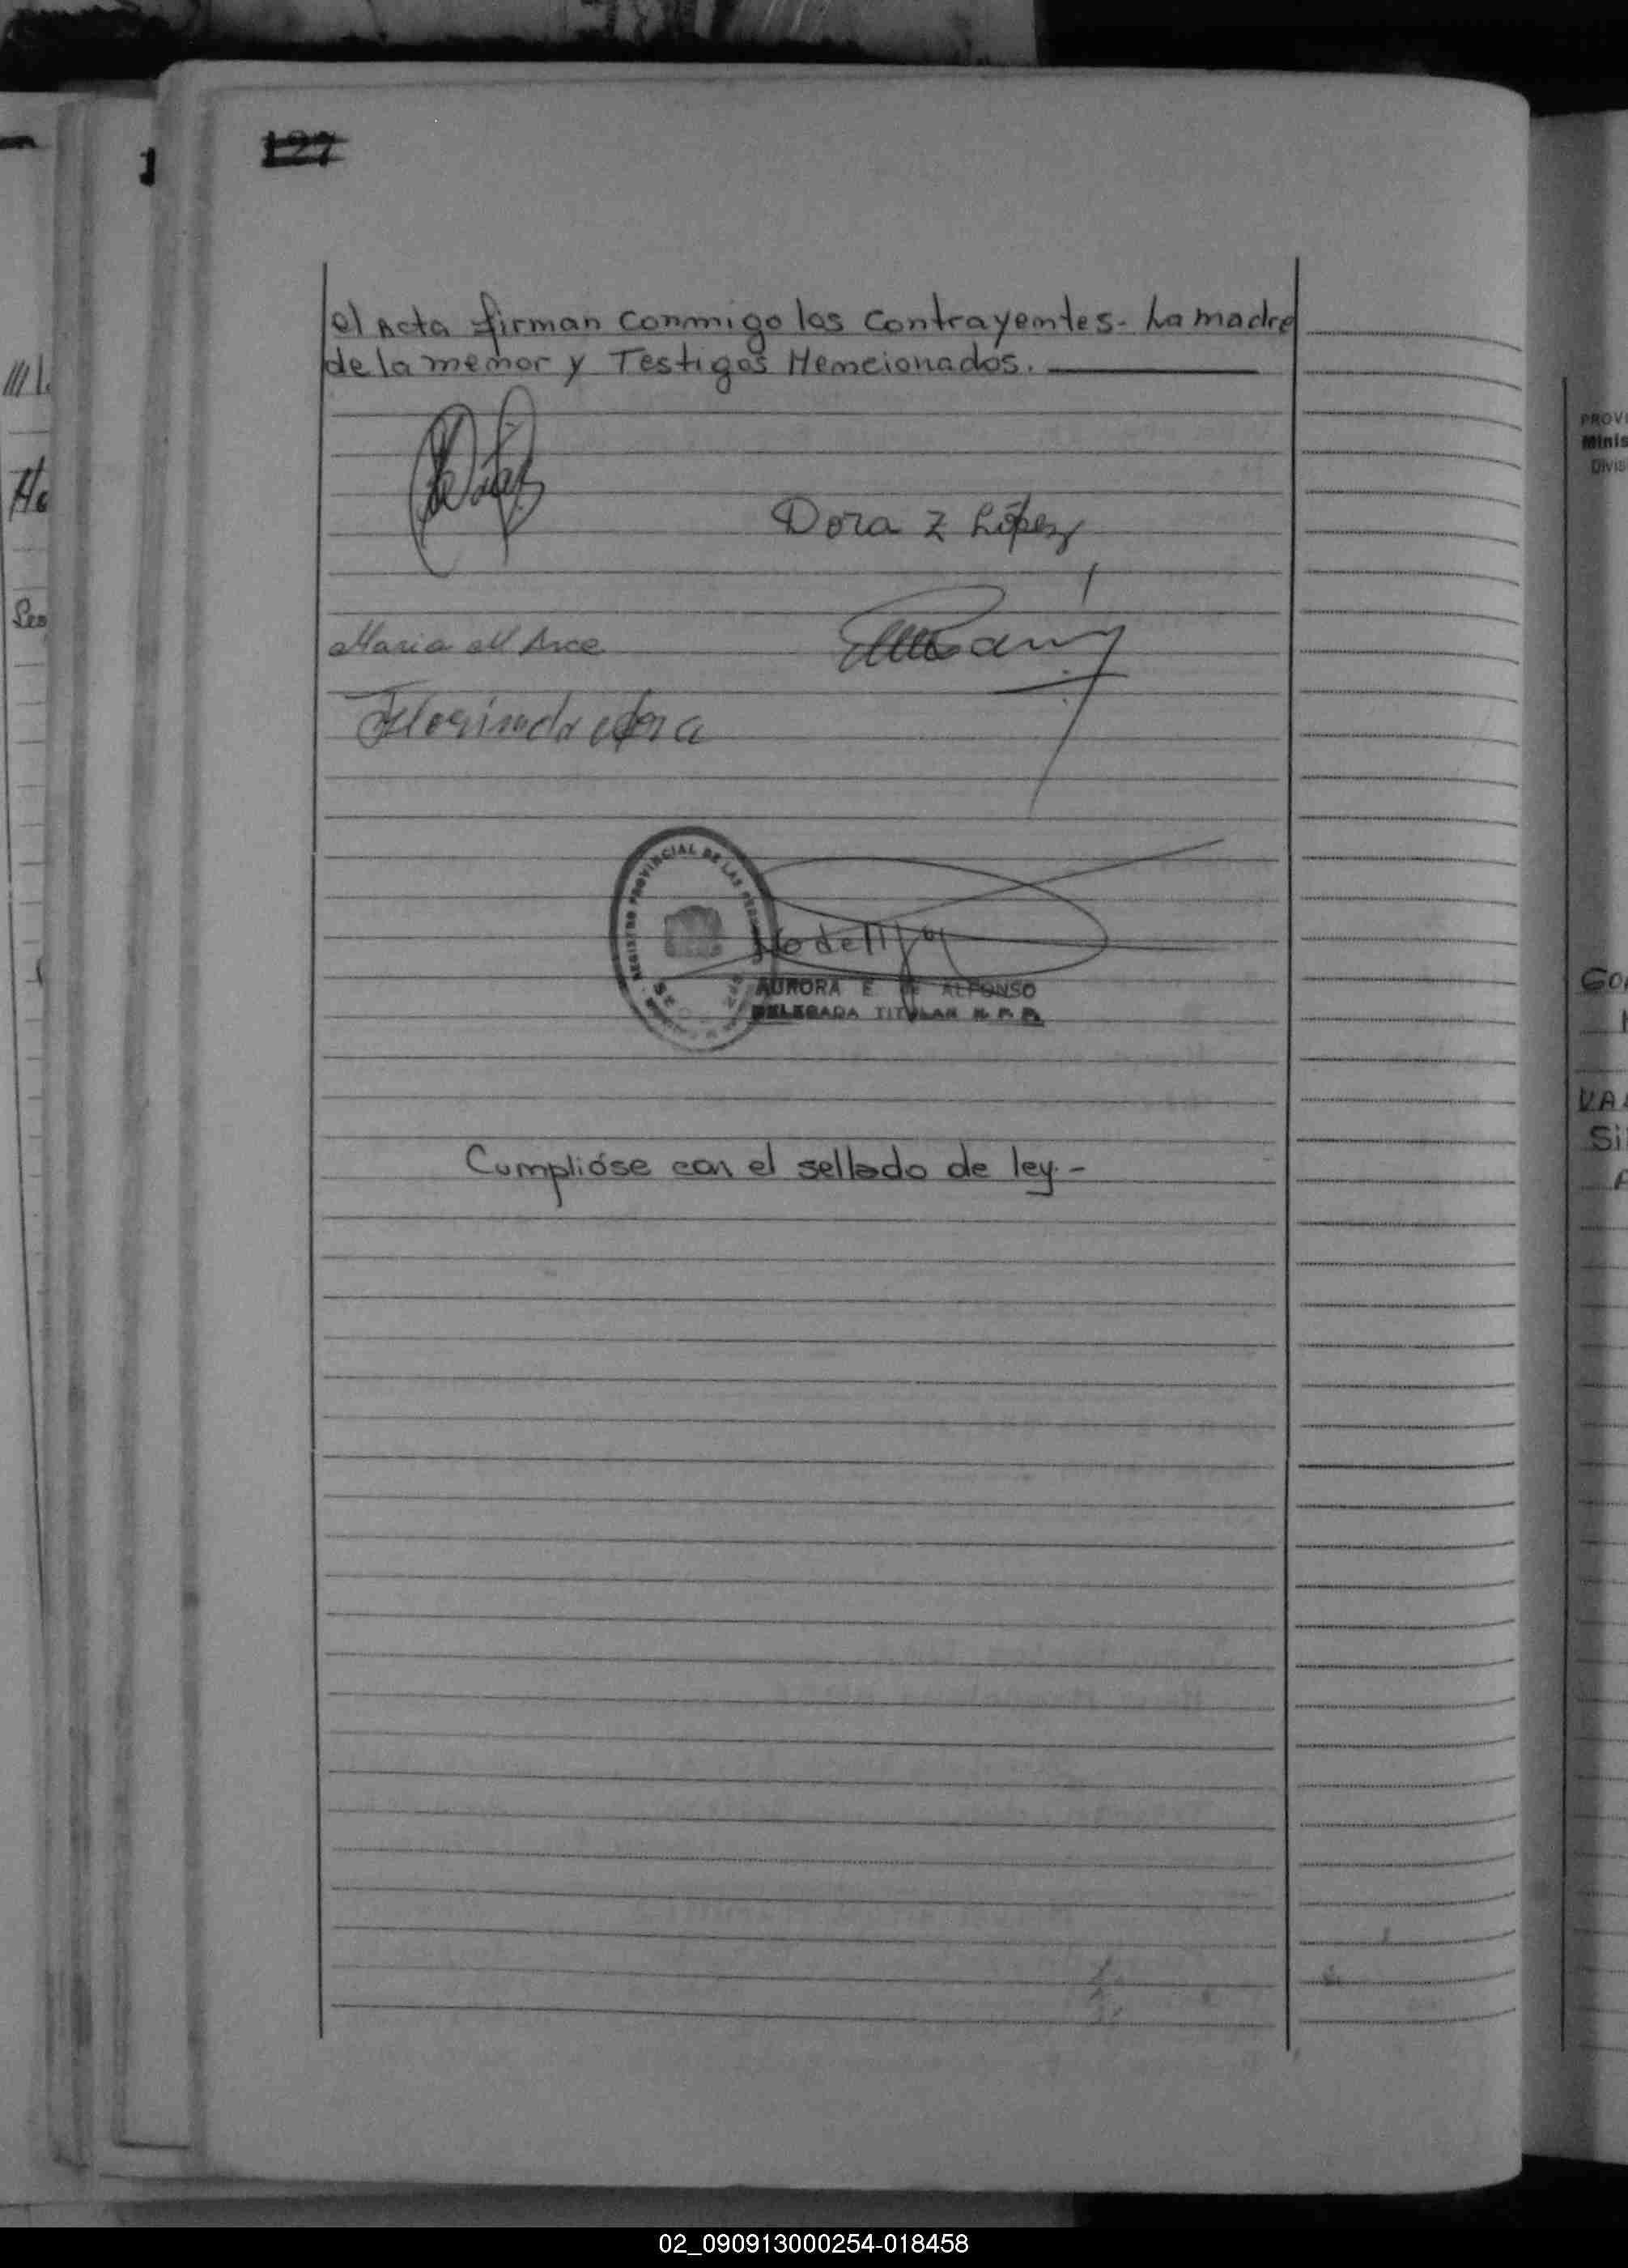 127
1
el Acta firman conmigo los Contrayentes- La madre
de la menor y Testigos Mencionados.
Dora Z López
Maria M Arce
REGISTRO PROVINCIAL DE LAS PERSONAS
AURORA E. DE ALFONSO
DELEGADA TITULAR R. P. P.
Cumplióse con el sellado de ley.-
PROVI
Minis
Divis
GO
VA
Si
02_090913000254-018458